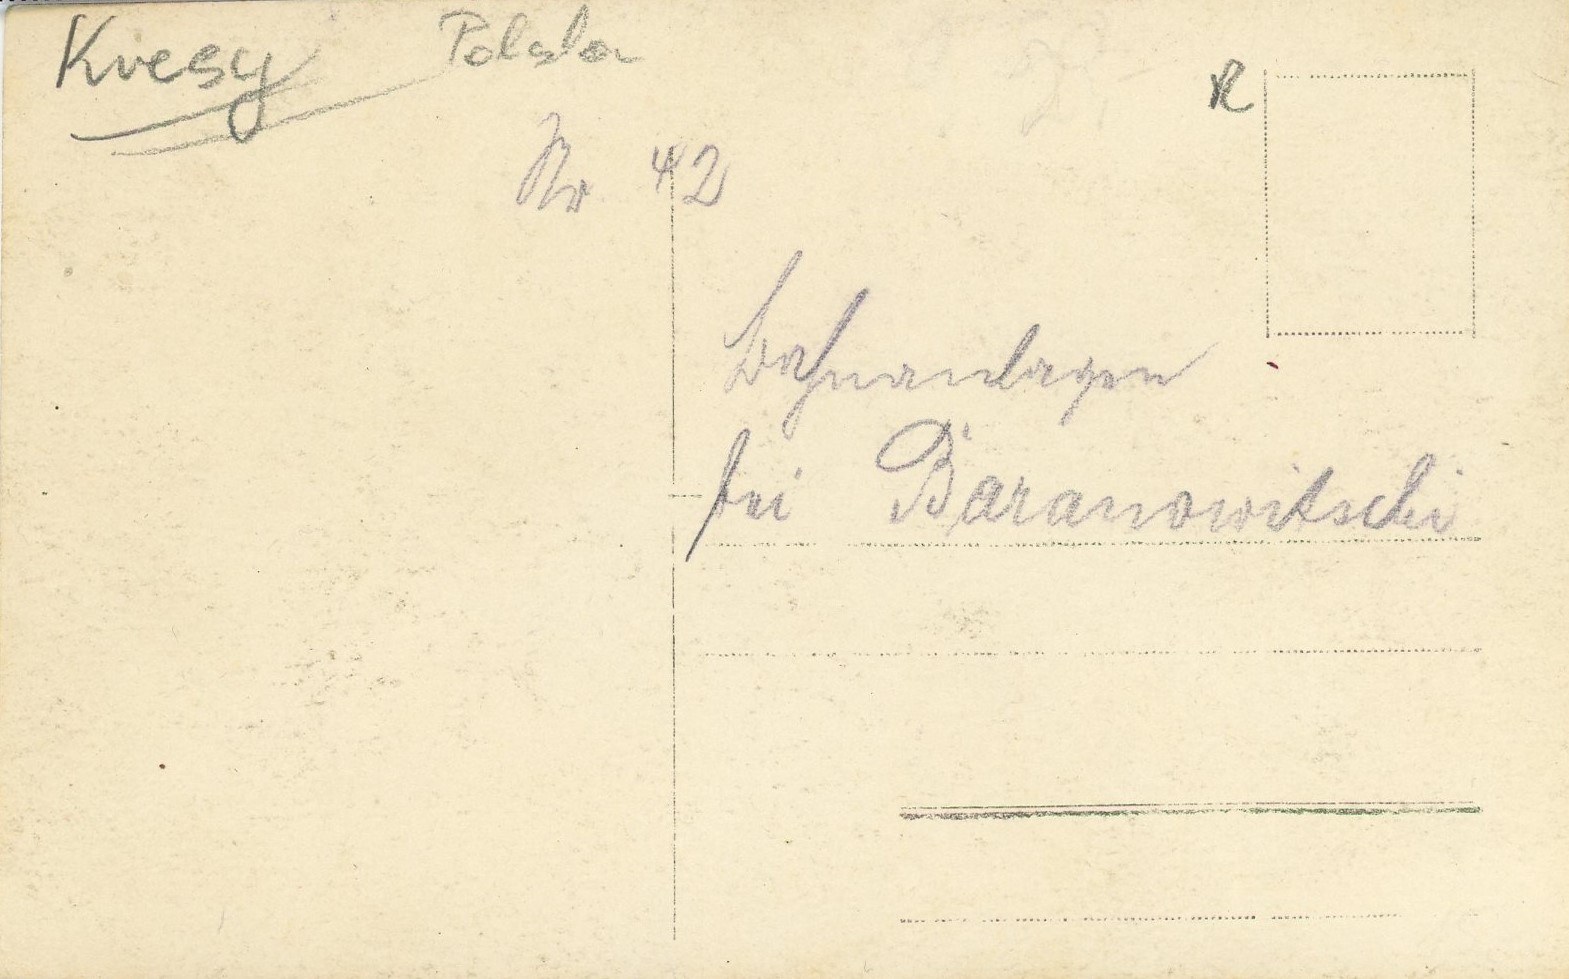 Kresy Polska
R
Nr 42
Bahnanlagen
bei Baranowitschi